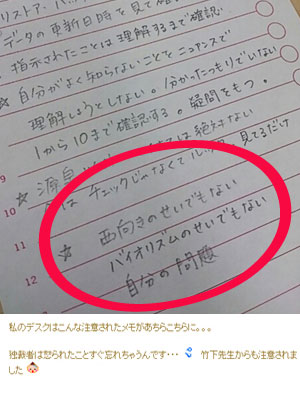 データの更新日時を見て確認
指示されたことは理解するまで確認
☆ 自分がよく知らないことをニュアンスで
理解しようとしない。分かったつもりでいない
1から10まで確認する。疑問をもつ。
9
は絶対ない
10
チェックじゃなくて
見てるだけ
11
☆ 西向きのせいでもない
バイオリズムのせいでもない
12
自分の問題
私のデスクはこんな注意されたメモがあちらこちらに。。。
独裁者は怒られたことすぐ忘れちゃうんです・・・ 竹下先生からも注意されま
した